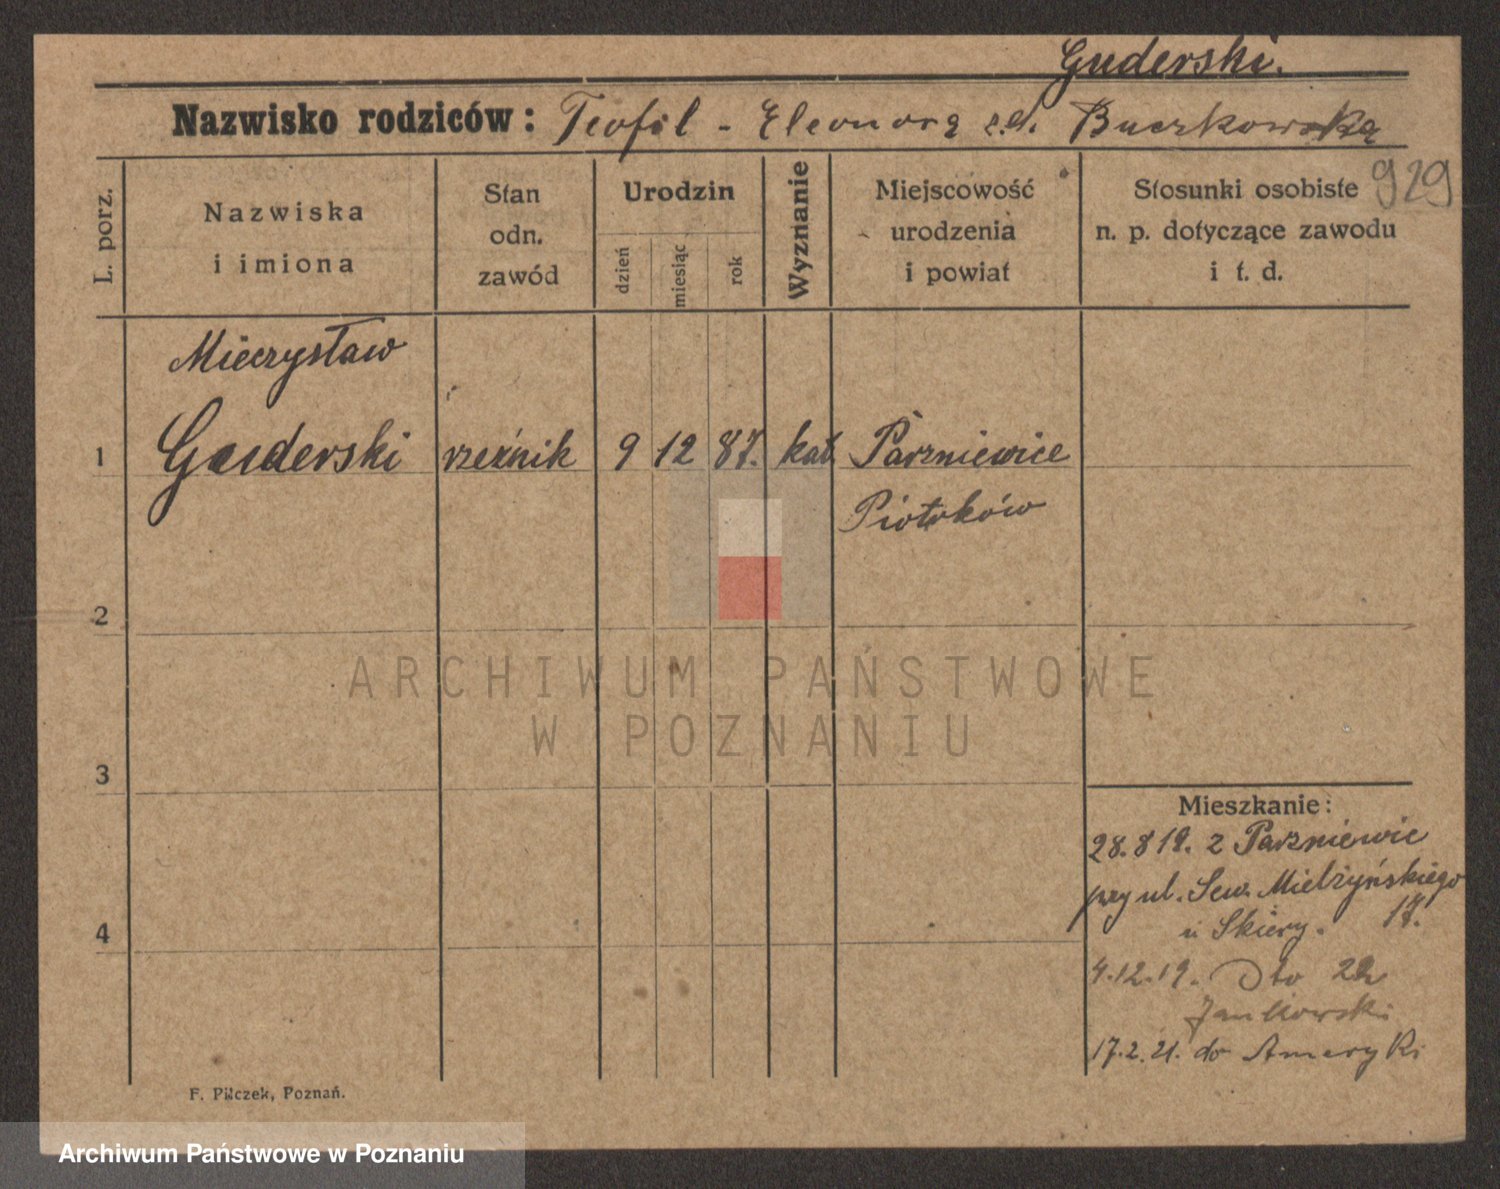 Guderski.
Nazwisko rodziców: Teofil - Eleonora z.d. Buczkowska
929
L. porz.
Nazwiska
i imiona
Stan
odn.
zawód
Urodzin
dzień
miesiąc
rok
Wyznanie
Miejscowość
urodzenia
i powiat
Stosunki osobiste
n. p. dotyczące zawodu
i t. d.
Mieczysław
1 Guderski rzeźnik 9 12 87. kat. Parzniewice
Piotrków
2
ARCHIWUM PAŃSTWOWE
W POZNANIU
3
Mieszkanie:
28.8 19. z Parzniewic
przy ul. Sew. Mielżyńskiego
u Skiery. 17.
4
4.12.19. Dto
Jankowski
17.2.21. do Ameryki
F. Pilczek, Poznań.
Archiwum Państwowe w Poznaniu